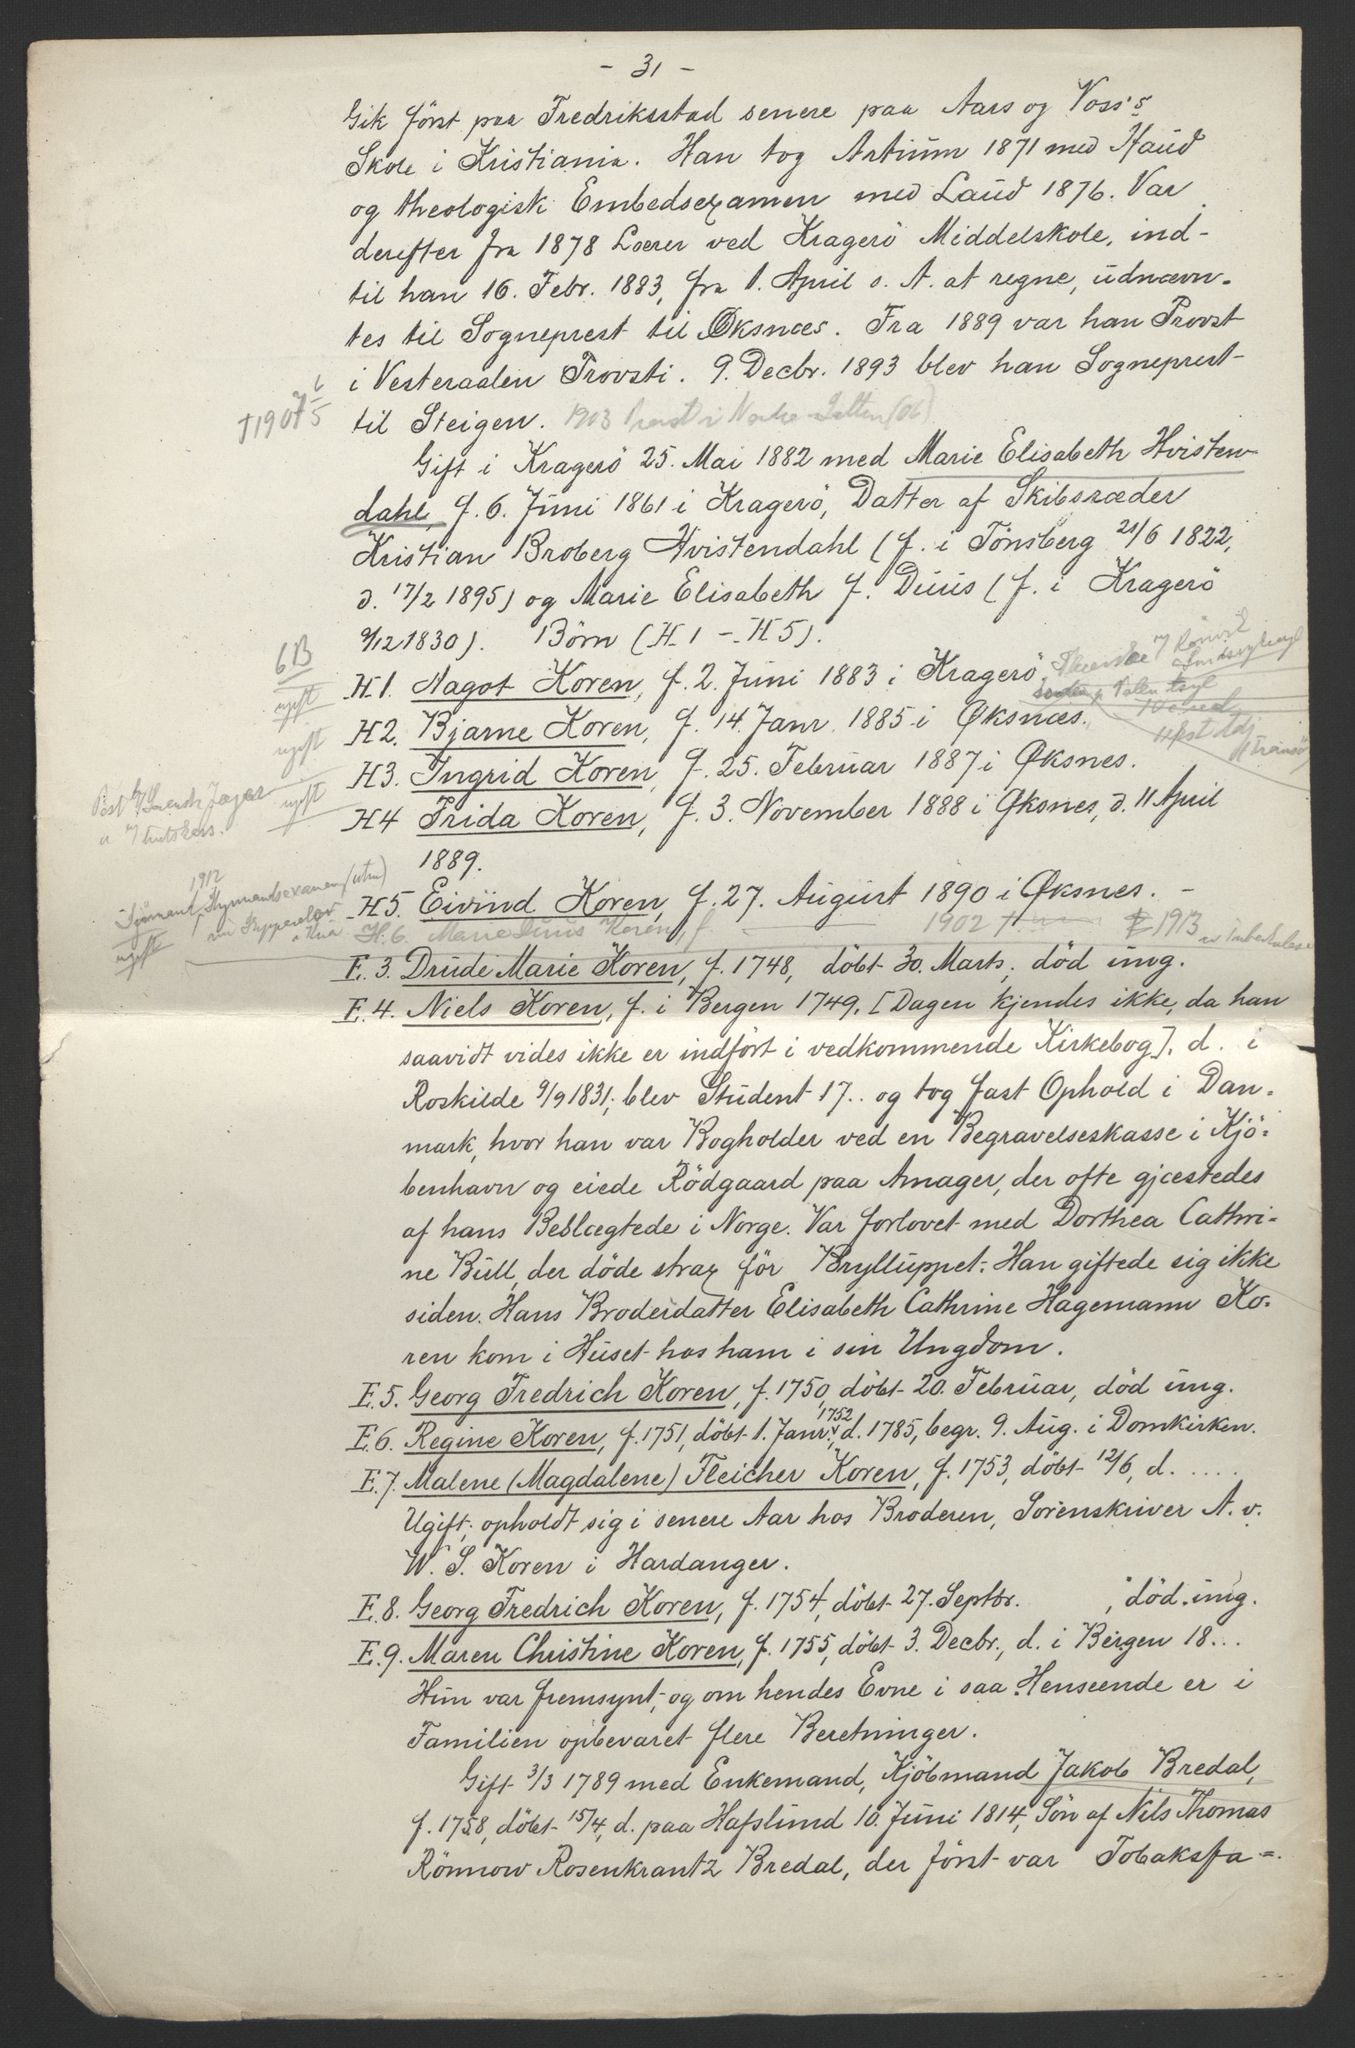 - 31 -
Gik först paa Fredriksstad senere paa Aars og Voss's
Skole i Kristiania. Han tog Artium 1871 med Haud
og theologisk Embedsexamen med Laud 1876. Var
derefter fra 1878 Lærer ved Kragerö Middelskole, ind-
til han 16. Febr. 1883, fra 1. April s. A. at regne, udnævn-
tes til Sogneprest til Øksnæs. Fra 1889 var han Provst
i Vesteraalen Provsti. 9. Decbr. 1893 blev han Sogneprest
†1907
til Steigen. 1903
Gift i Kragerö 25. Mai 1882 med Marie Elisabeth Hvisten-
dahl, f. 6. Juni 1861 i Kragerö, Datter af Skibsræder
Kristian Broberg Hvistendahl (f. i Tönsberg 21/6 1822,
d. 17/2 1895) og Marie Elisabeth f. Duus (f. i Kragerö
9/12 1830). Börn (H.1 - H5).
6 B
ugift
H1. Nagot Koren, f. 2. Juni 1883 i Kragerö.
ugift
H2. Bjarne Koren, f. 14. Janr. 1885 i Øksnæs.
H3. Ingrid Koren, f. 25. Februar 1887 i Øksnes.
ugift
H4 Frida Koren, f. 3. November 1888 i Øksnes, d. 11 April
1889.
1912
H5. Eivind Koren, f. 27. August 1890 i Øksnes. -
ugift
H.6. Marie Duus Koren, f. 1902 † 1913
E. 3. Drude Marie Koren, f. 1748, döbt 30. Marts, död ung.
E. 4. Niels Koren, f. i Bergen 1749. [Dagen kjendes ikke, da han
saavidt vides ikke er indfört i vedkommende Kirkebog], d. i
Roskilde 9/9 1831; blev Student 17.. og tog fast Ophold i Dan-
mark, hvor han var Bogholder ved en Begravelseskasse i Kjö-
benhavn og eiede Rödgaard paa Amager, der ofte gjæstedes
af hans Beslægtede i Norge. Var forlovet med Dorthea Cathri-
ne Bull, der döde strax för Brylluppet. Han giftede sig ikke
siden. Hans Broderdatter Elisabeth Cathrine Hagemann Ko-
ren kom i Huset hos ham i sin Ungdom.
E. 5. Georg Fredrich Koren, f. 1750, döbt 20. Februar, död ung.
E. 6. Regine Koren, f. 1751, döbt 1. Janr. 1752, d. 1785, begr. 9. Aug. i Domkirken.
E. 7. Malene (Magdalene) Fleicher Koren, f. 1753, döbt 12/6, d. .....
Ugift; opholdt sig i senere Aar hos Broderen, Sorenskriver A. v.
W. S. Koren i Hardanger.
E. 8. Georg Fredrich Koren, f. 1754, döbt 27. Septbr. , död ung.
E. 9. Maren Christine Koren, f. 1755, döbt 3. Decbr., d. i Bergen 18...
Hun var fremsynt, og om hendes Evne i saa Henseende er i
Familien opbevaret flere Beretninger.
Gift 3/3 1789 med Enkemand, Kjöbmand Jakob Bredal,
f. 1758, döbt 15/4, d. paa Hafslund 10. Juni 1814, Sön af Nils Thomas
Rönnow Rosenkrantz Bredal, der först var Tobaksfa-